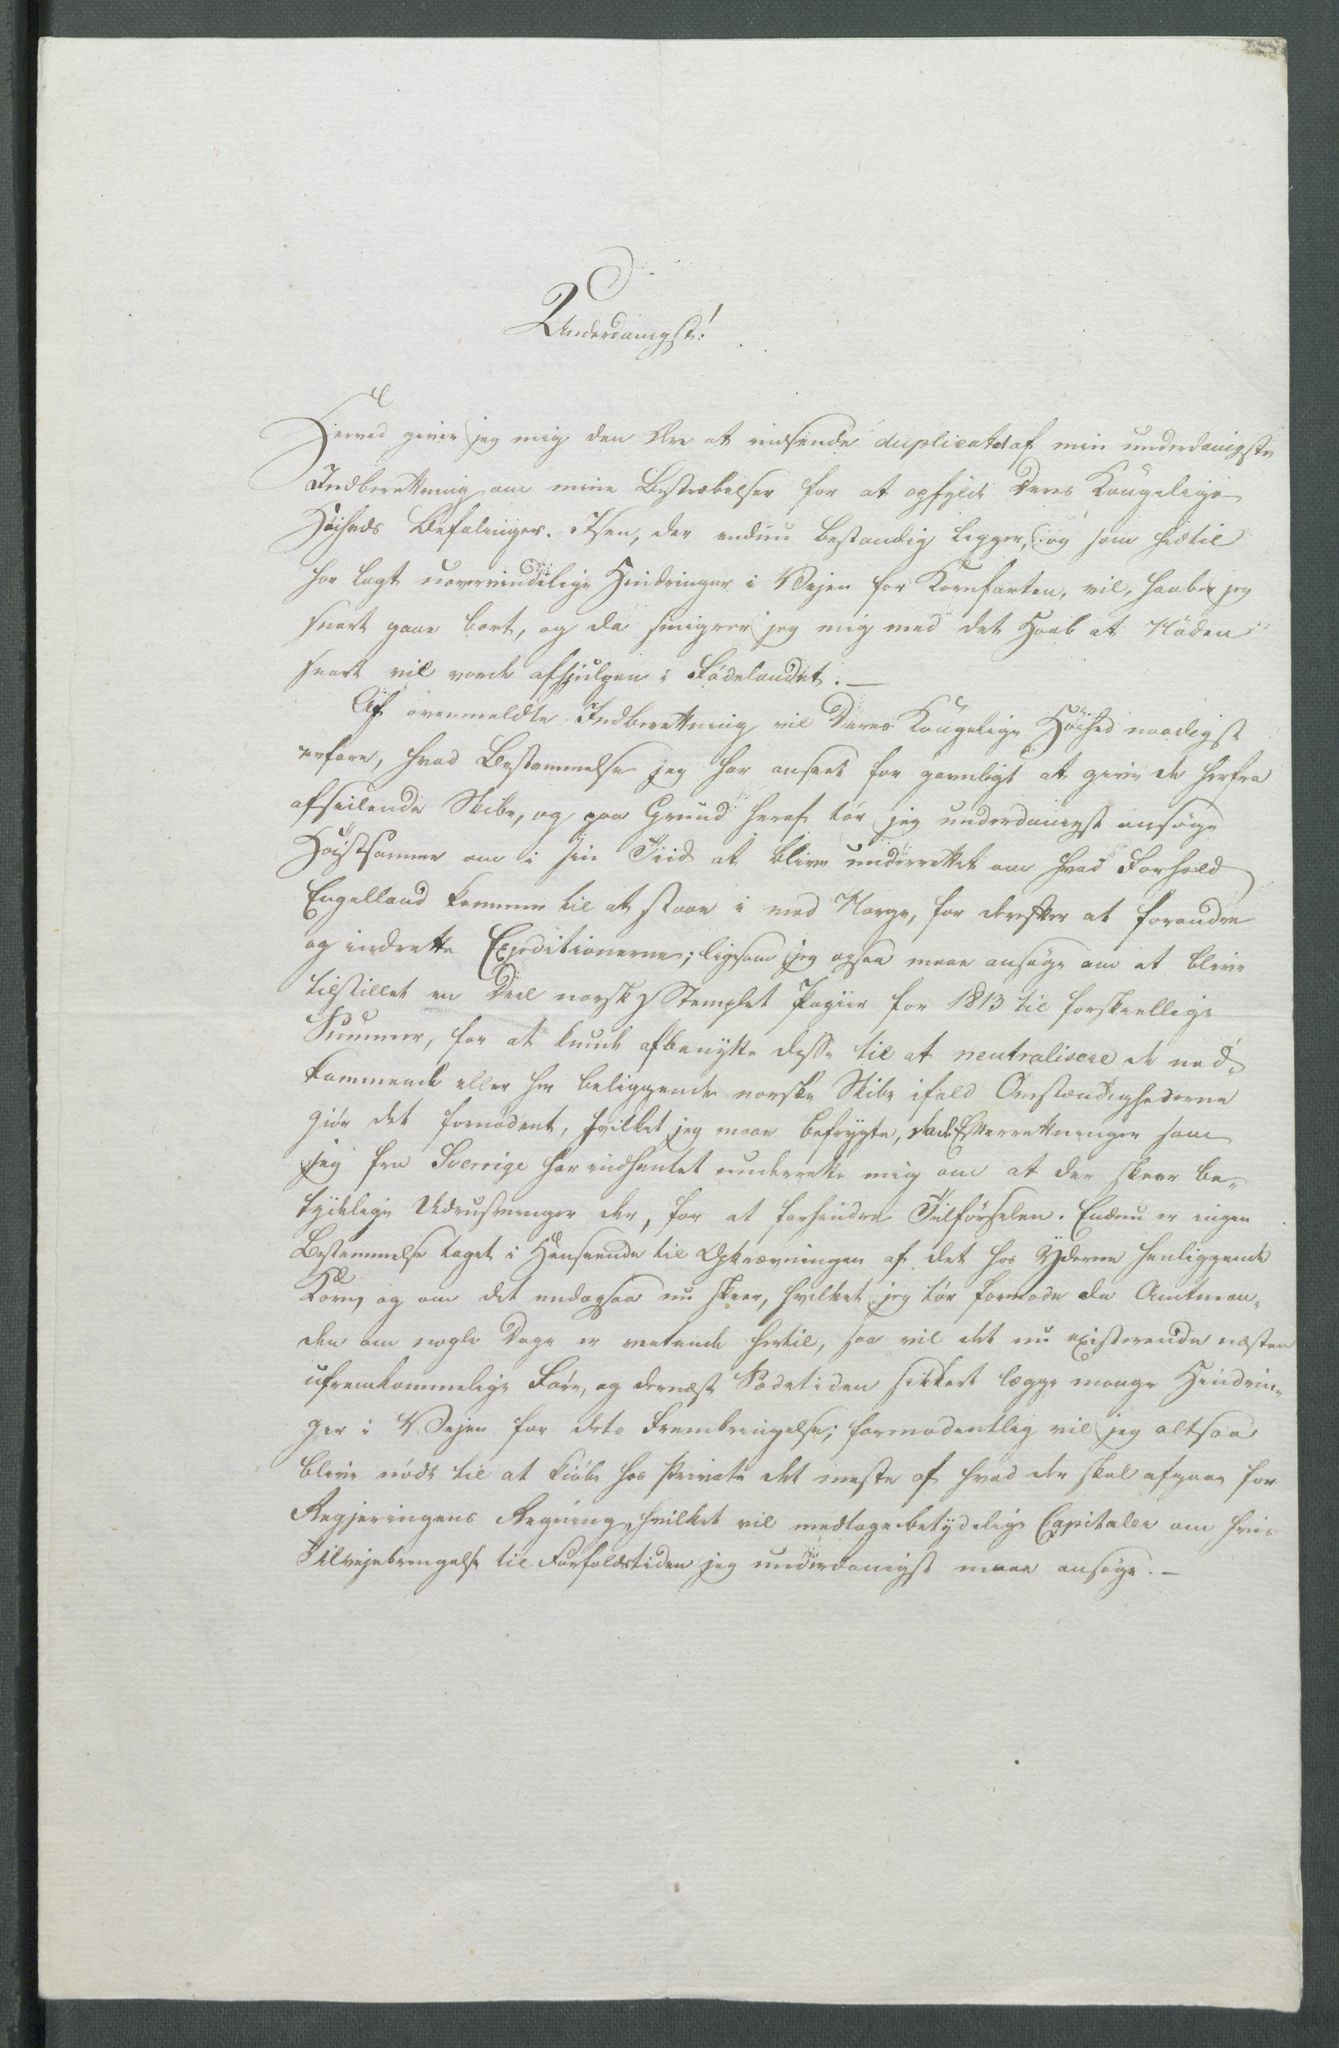 Underdanigst!
Herved giver jeg mig den Ære at indsende duplicatet af min underdanigste
Indberettning om mine Bestræbelser for at opfylde Deres Kongelige
Høiheds Befalinger. Isen, der endnu bestandig ligger, og som hidtil
har lagt uovervindelige Hindringer i Vejen for Kornfarten, vil, haaber jeg
snart gaae bort, og da smigrer jeg mig med det Haab at Nøden
snart vil vorde afhjulpen i Fødelandet. —
Af ovenmeldte Indberettning vil Deres Kongelige Høihed naadigst
erfare, hvad Bestemmelse jeg har anseet for gavnligt at give de herfra
afseilende Skibe, og paa Grund heraf tør jeg underdanigst ansøge
Høistsamme om i sin Tiid at blive underrettet om hvad Forhold
Engelland kommer til at staae i med Norge, for derefter at forandre
og indrette Expeditionerne; ligesom jeg ogsaa maae ansøge om at blive
tilstillet en Deel norsk Stemplet Papiir for 1813 til forskiellige
Summer, for at kunde afbenytte disse til at neutralisere de ned-
kommende eller her beliggende norske Skibe ifald Omstændighederne
giør det fornødent, hvilket jeg maae befrygte, da de Efterrettninger som
jeg fra Sverrige har indhentet underrette mig om at der skeer be-
tydelige Udrustninger der, for at forhindre Tilførselen. Endnu er ingen
Bestemmelse taget i Henseende til Opkrævningen af det hos Yderne henliggende
Korn, og om det endogsaa nu skeer, hvilket jeg tør formode da Amtman-
den om nogle Dage er ventende hertil, saa vil det nu existerende næsten
ufremkommelige Føre, og dernæst Sædetiden sikkert lægge mange Hindrin-
ger i Vejen for dets Frembringelse; formodentlig vil jeg altsaa
blive nødt til at kiøbe hos Private det meste af hvad der skal afgaae for
Regjeringens Regning, hvilket vil medtage betydelige Capitaler om hvis
Tilvejebringelse til Forfaldstiden jeg underdanigst maae ansøge. —